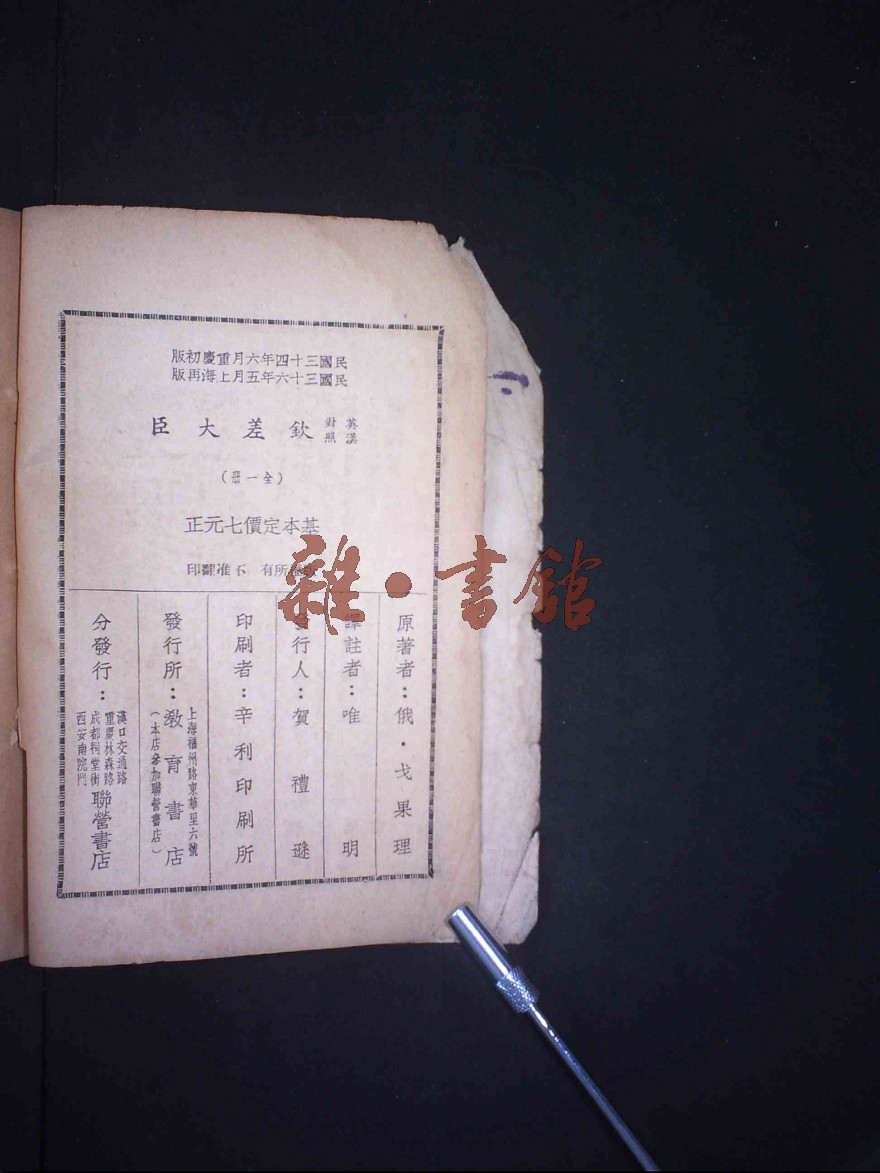 民國三十四年六月重慶初版
民國三十六年五月上海再版
英漢對照 欽差大臣
（全一冊）
基本定價七元正
所有 不准翻印
原著者：俄・戈果理
譯註者：唯明
發行人：賀禮遜
印刷者：辛利印刷所
發行所：教育書店
上海福州路東華里六號
（本店參加聯營書店）
分發行：聯營書店
漢口交通路
重慶林森路
成都祠堂街
西安南院門
雜・書館